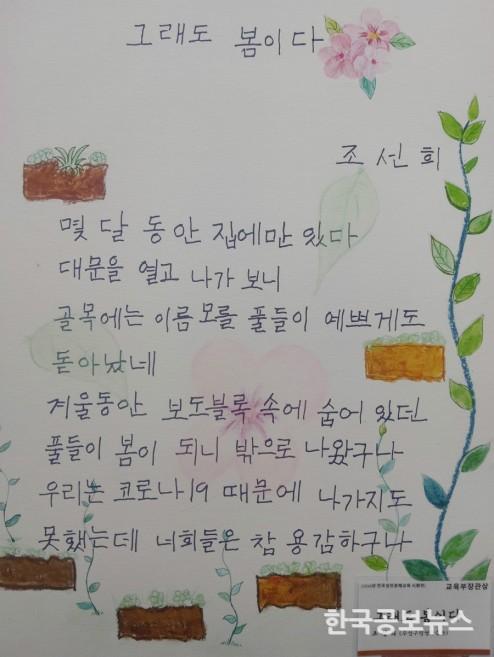 그래도 봄이다
조선희
몇 달 동안 집에만 있다
대문을 열고 나가 보니
골목에는 이름 모를 풀들이 예쁘게도
돋아났네
겨울동안 보도블록 속에 숨어 있던
풀들이 봄이 되니 밖으로 나왔구나
우리는 코로나19 때문에 나가지도
못했는데 너희들은 참 용감하구나
교육부장관상
한국공보뉴스